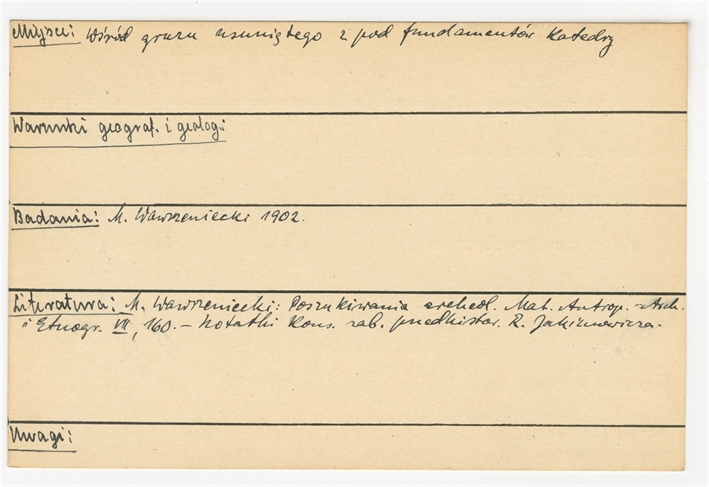 Miejsce: Wśród gruzu usuniętego z pod fundamentów Katedry
Warunki geograf. i geolog.:
Badania: M. Wawrzeniecki 1902.
Literatura: M. Wawrzeniecki: Poszukiwania archeol. Mat. Antrop.-Arch.
i Etnogr. VII, 160. – Notatki Kons. zab. przedhistor. R. Jakimowicza.
Uwagi: